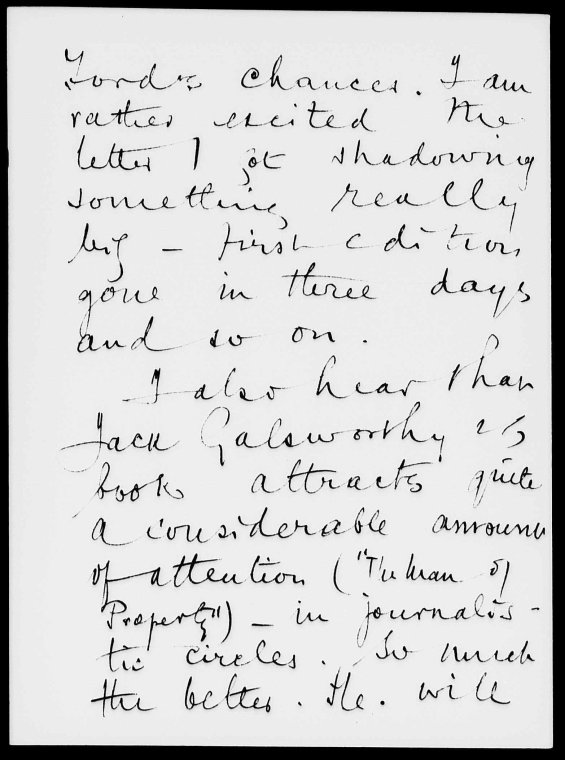 Ford's chances. I am
rather excited the
letter I got shadowing
something really
big – first edition
gone in three days
and so on.
I also hear than
Jack Galsworthy's
book attracts quite
a considerable amount
of attention ("The Man of
Property") – in journalis-
tic circles. So much
the better. He. will